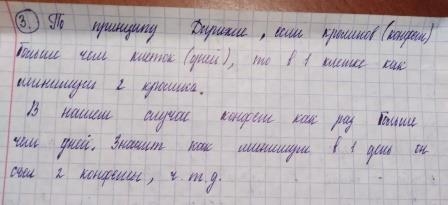 3. По принципу Дирихле, если кроликов (конфет)
больше чем клеток (дней), то в 1 клетке как
минимум 2 кролика.
В нашем случае конфет как раз больше
чем дней. Значит как минимум в 1 день он
съел 2 конфеты, ч.т.д.